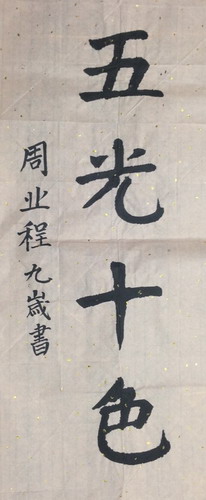 五光十色
周业程九歳書